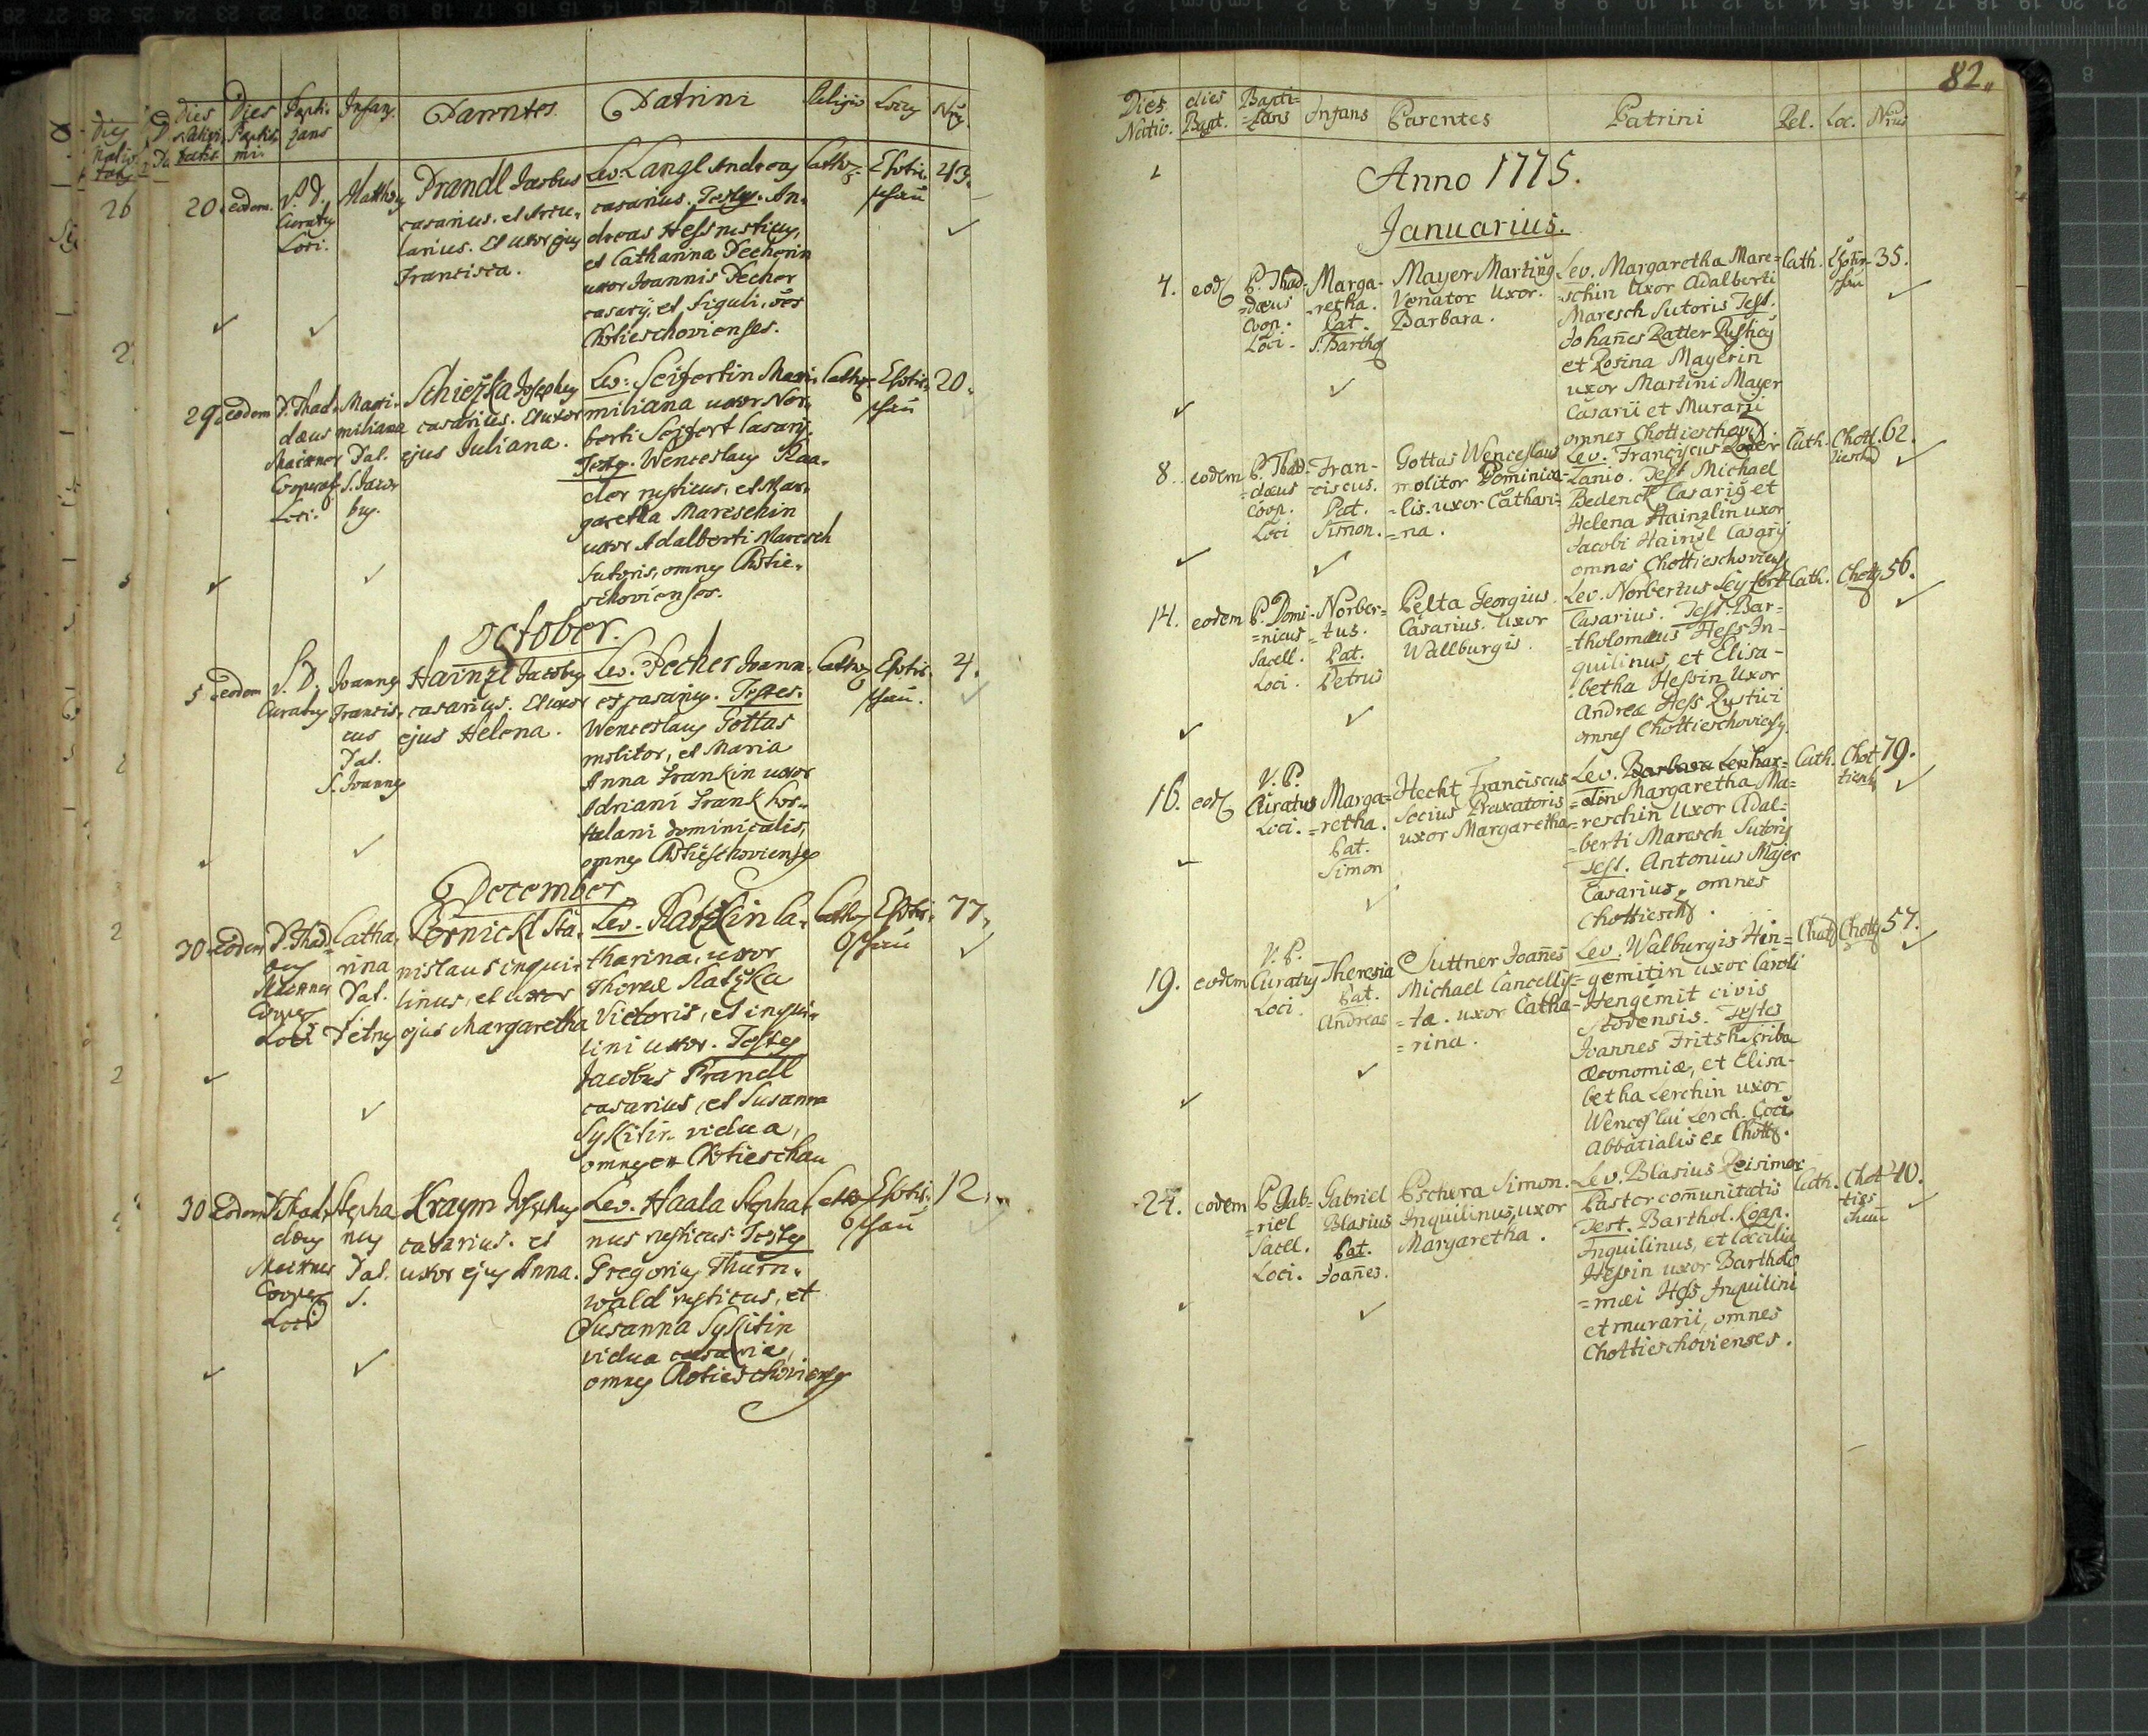 Dies Nativitatis
Dies Baptismi
Baptizans
Infans
Parentes
Patrini
Religio
Locus
Nrus
20. eodem. P. D. Curatus Loci.
Mathæus
Prandl Jacobus
casarius. et
Et uxor ejus
Francisca.
Lev. Langl Andreas
casarius. Testes. An-
dreas Hess rusticus,
et Catharina Pecherin
uxor Joannis Pecher
casarij, et figuli, oes
Chotieschovienses.
Cathol.
Chotie-
schau
43.
29. eodem
P. Thad-
dæus
Cooperat.
Loci.
Maxi-
miliana
Pat.
S. Jaco-
bus.
Schiežka Josephus
casarius. Et uxor
ejus Juliana.
Lev: Seifertin Maxi-
miliana uxor Nor-
berti Seifert casarij.
Testes. Wenceslaus Raa-
der rusticus, et Mar-
garetha Mareschin
uxor Adalberti Maresch
sutoris, omnes Chotie-
schovienses.
Cathol.
Chotie-
schau
20.
October.
5 eodem
P. D.
Curatus
Joannes
Francis-
cus
Pat.
S. Joannes
Hainzl Jacobus
casarius. Et uxor
ejus Helena.
Lev. Pecher Joann-
es casarius. Testes.
Wenceslaus Gottas
molitor, et Maria
Anna Frankin uxor
Adriani Frank hor-
tulani dominicalis,
omnes Chotieschovienses
Cathol.
Chotie-
schau.
4.
December
30 Eodem
P. Thad-
dæus
Cooper
Loci
Catha-
rina
Pat.
Petrus
Pornickl Sta-
nislaus inqui-
linus, et uxor
ejus Margaretha
Lev. Ratzkin Ca-
tharina, uxor
Thomæ Ratzka
Victoris, et inqui-
lini uxor. Testes
Jacobus Prandl
casarius, et Susanna
Syskitin vidua,
omnes ex Chotieschau
Cathol.
Chotie-
schau
77.
30 Eodem
P. Thad-
dæus
Cooper
Loci
Stepha-
nus
Pat.
S.
Kraym Josephus
casarius. et
uxor ejus Anna.
Lev. Haala Stepha-
nus rusticus. Testes
Gregorius Thurn-
wald rusticus, et
Susanna Syskitin
vidua casaria,
omnes Chotieschovienses
Cathol.
Chotie-
schau
12.
82.
Dies
Nativ.
dies
Bapt.
Bapti-
=zans
Infans
Parentes
Patrini
Rel.
Loc.
Nrus
Anno 1775.
Januarius.
4. eod.
P. Thad-
=dæus
Coop.
Loci.
Marga-
=retha.
Pat.
S. Barthol.
Mayer Martinus
Venator Uxor.
Barbara.
Lev. Margaretha Mare-
=schin Uxor Adalberti
Maresch Sutoris Test.
Johannes Ratter Rusticus
et Rosina Mayerin
uxor Martini Mayer
Casarii et Murarii
omnes Chottieschov.
Cath.
Chottie-
schau
35.
8. eodem
P. Thad-
=dæus
Coop.
Loci
Fran-
=ciscus.
Pat.
Simon.
Gottas Wenceslaus
molitor Dominica-
=lis. uxor Cathari-
=na.
Lev. Franciscus Loder
Lanio. Test. Michael
Bedenck Casarius et
Helena Hainzlin uxor
Jacobi Hainzl Casarij
omnes Chottieschovienses
Cath.
Chot-
tieschau
62.
14. eodem
P. Domi-
=nicus
Sacell.
Loci.
Norber-
=tus.
Pat.
Petrus
Pelta Georgius
Casarius. Uxor
Wallburgis.
Lev. Norbertus Seyfert
Casarius. Test. Bar-
=tholomæus Hess In-
quilinus, et Elisa-
betha Hessin Uxor
Andreæ Hess Rustici
omnes Chottieschoviens.
Cath.
Chott.
56.
16. eod.
V. P.
Curatus
Loci.
Marga-
=retha.
Pat.
Simon
Hecht Franciscus
Socius Braxatoris
uxor Margaretha
Lev. Barbara Lenhar-
=din Margaretha Ma-
=reschin Uxor Adal-
=berti Maresch Sutoris
Test. Antonius Majer
Casarius, omnes
Chottiesch.
Cath.
Chot-
tiesch.
79.
19. eodem
V. P.
Curatus
Loci.
Theresia
Pat.
Andreas
Suttner Joannes
Michael Cancellis-
=ta. uxor Catha-
=rina.
Lev. Walburgis Hen-
=gemitin uxor Caroli
Hengemit civis
Stodensis. Testes
Joannes Fritsch scriba
œconomiæ, et Elisa-
betha Lerchin uxor
Wenceslai Lerch. Coci
Abbatialis ex Chott.
Cath.
Chott.
57.
24. eodem
P. Gab-
=riel
Sacel.
Loci.
Gabriel
Blasius
Pat.
Joannes.
Pschera Simon.
Inquilinus, uxor
Margaretha.
Lev. Blasius Reisimer
Pastor communitatis
Test. Barthol. Kopp.
Inquilinus, et Cæcilia
Hessin uxor Bartholo-
=mæi Hess Inquilini
et murarii, omnes
Chottieschovienses.
Cath.
Chot-
ties-
chau
40.